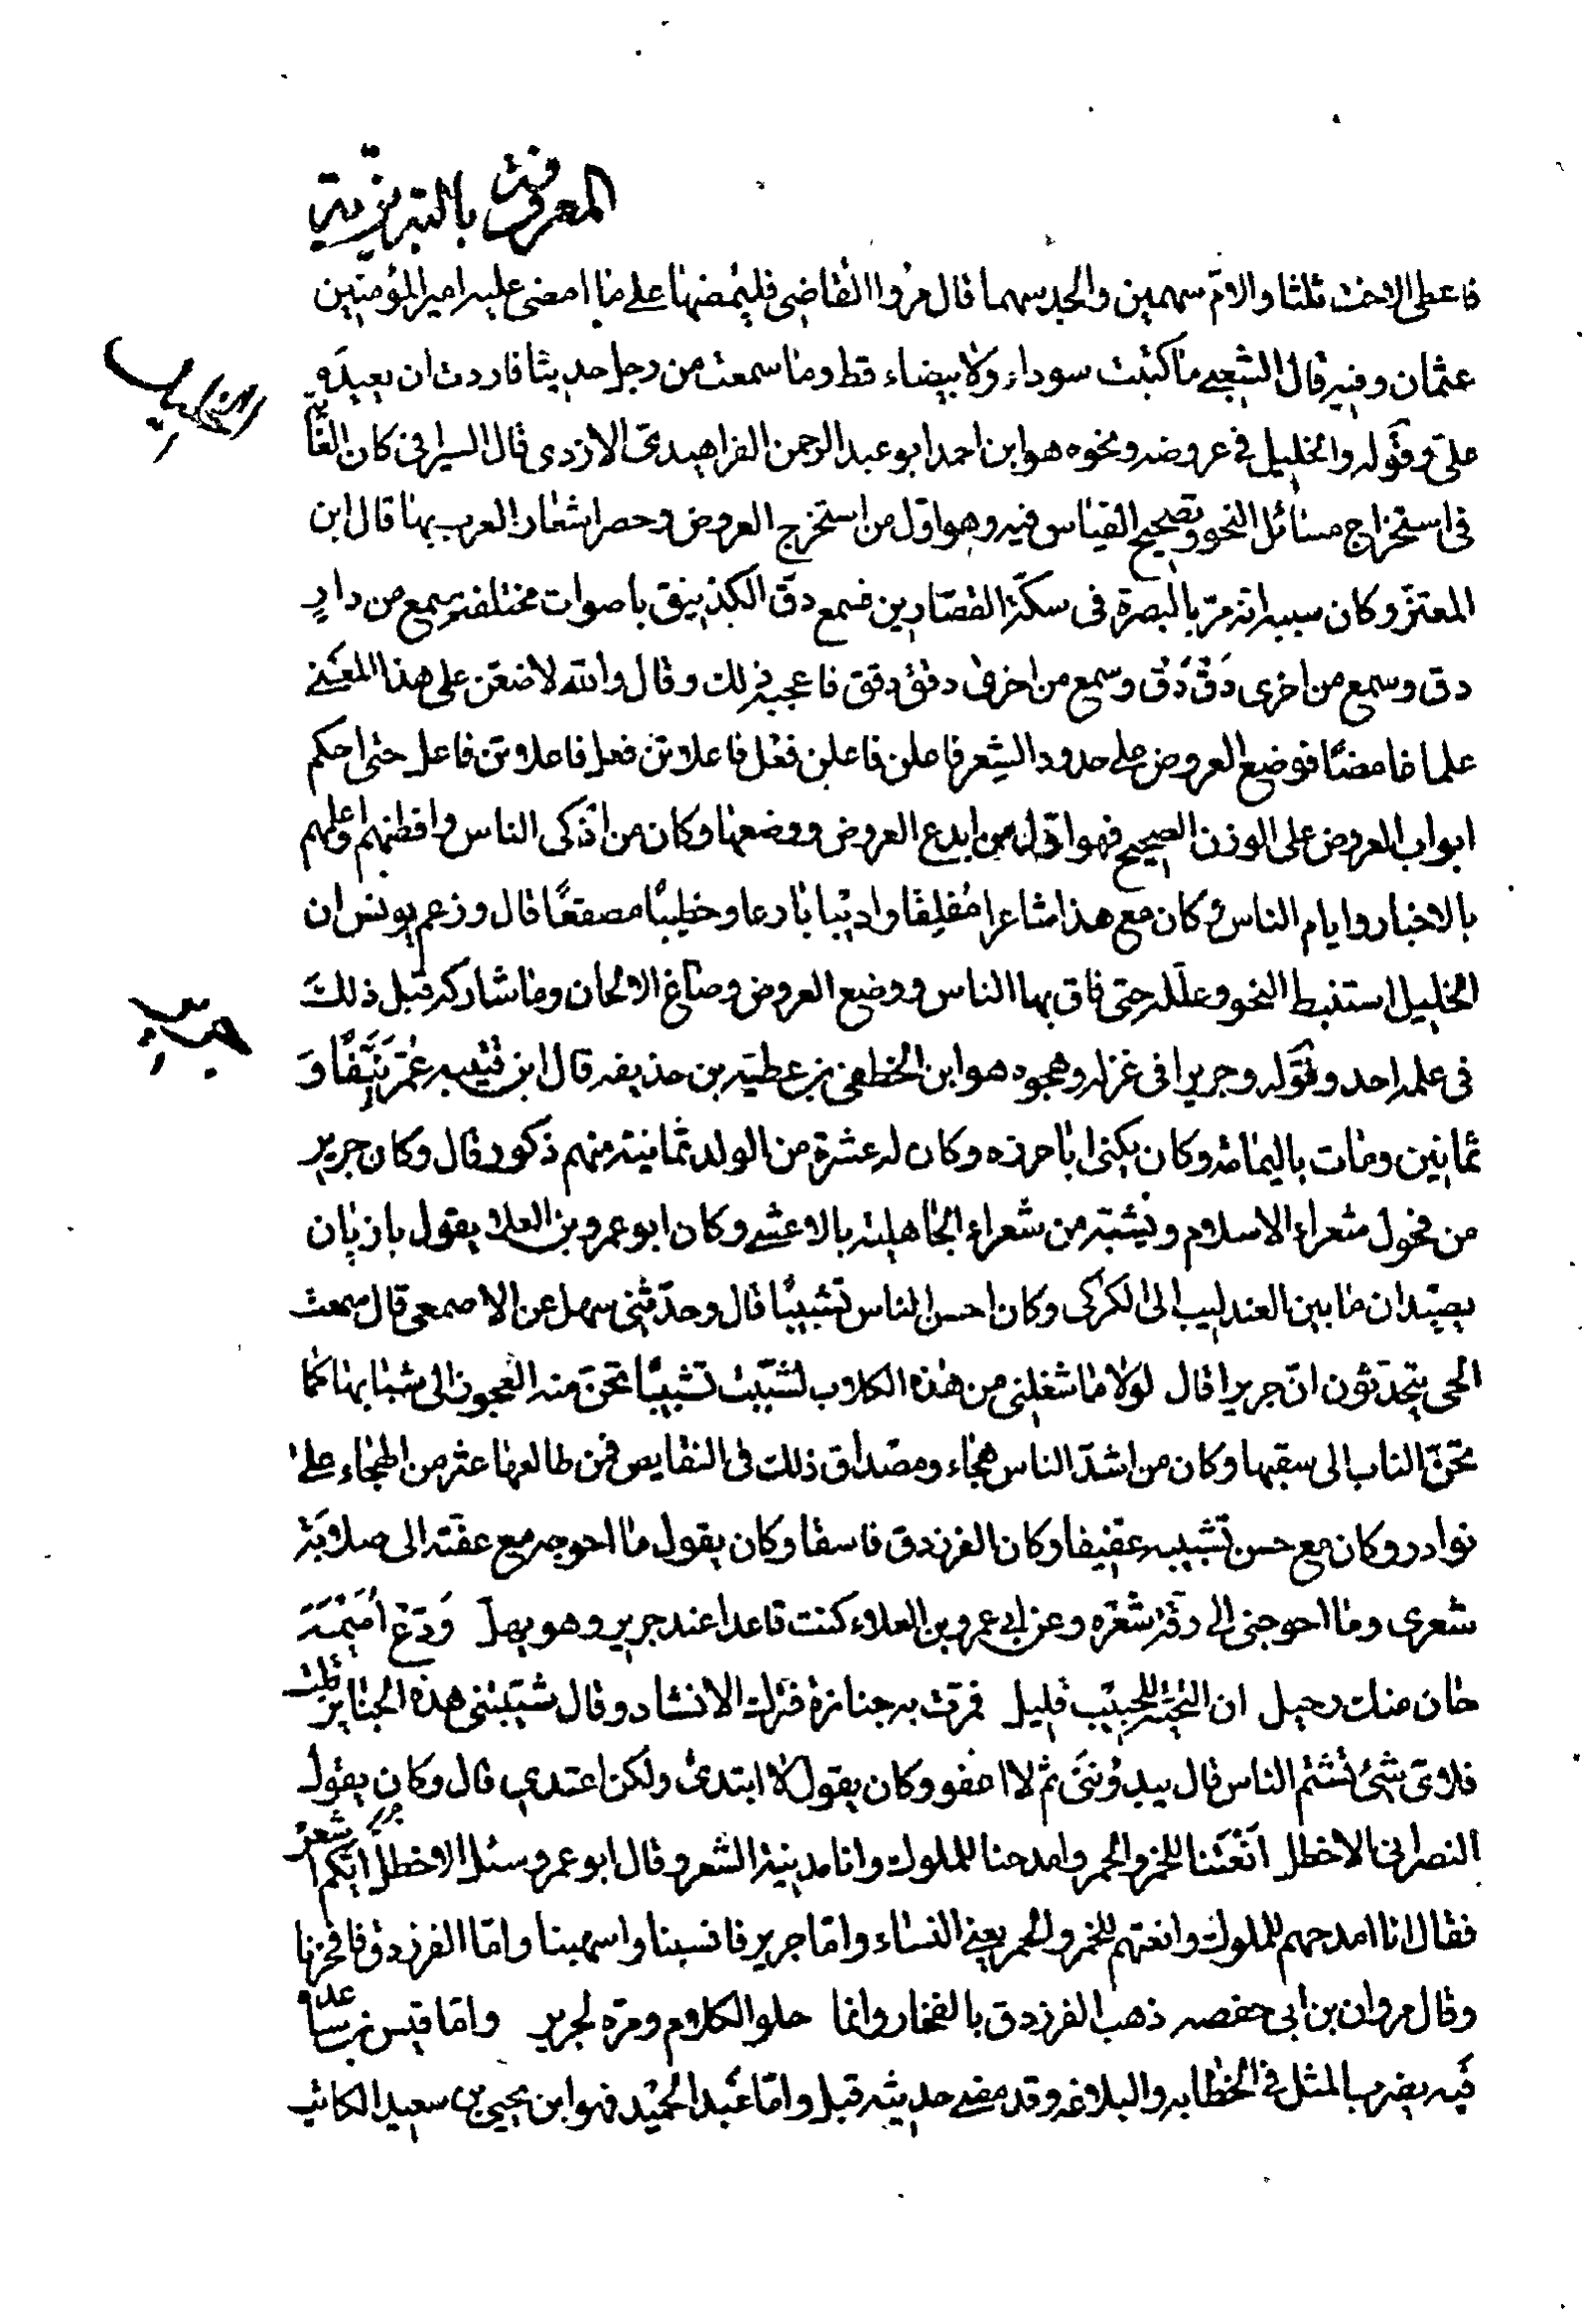 المعروف بالتبريزية
فاعطى الاخت ثلثا والامّ سهمين والجد سهما قال مروا القاضي فليمضها على ما امضى عليه امير المؤمنين
عثمان وفيه قال الشعبي ما كتبت سوداء ولا بيضاء قط وما سمعت من رجل حديثا فاردت ان يعيده
الخليل
علىّ وقوله والخليل في عروضه ونحوه هو ابن احمد ابو عبد الرحمن الفراهيدىّ الازدى قال السيرافى كان الغاية
فى استخراج مسائل النحو وتصحيح القياس فيه وهو اوّل من استخرج العروض وحصر اشعار العرب بها قال ابن
المعتز وكان سببه انه مرّ بالبصرة فى سكّة القصّارين فسمع دقّ الكذينق باصوات مختلفة سمع من دار
دق وسمع من اخرى دَقْ دَقْ وسمع من اخرى دقق دقق فاعجبه ذلك وقال والله لاضعن على هذا المعنى
علما غامضًا فوضع العروض على حدود الشعر فاعلن فاعلن فعل فاعلاتن فعل فاعلاتن فاعل حتى احكم
ابواب العروض على الوزن الصحيح فهو اوّل من ابدع العروض ووضعها وكان من اذكى الناس وافطنهم واعلمهم
بالاخبار وايام الناس وكان مع هذا شاعرا مُفلِقا واديبا بارعا وخطيبًا مصقعًا قال وزعم يونس ان
الخليل استنبط النحو وعلله حتى فاق بها الناس ووضع العروض وصاغ الالحان وما شاركه قبل ذلك
جرير
فى علمه احد وقوله وجريرا فى غزله وهجوه هو ابن الخطفى بن عطية بن حذيفه قال ابن قتيبه عُمّر نَيّفًا وَ
ثمانين ومات باليمامة وكان يكنى ابا حرزه وكان له عشرة من الولد ثمانية منهم ذكور قال وكان جرير
من فحول شعراء الاسلام ويشبّه من شعراء الجاهلية بالاعشى وكان ابو عمرو بن العلا يقول بازيان
يصيدان ما بين العندليب الى الكركى وكان احسن الناس تشبيبًا قال وحدّثنى سهل عن الاصمعى قال سمعت
الحى يتحدثون انّ جريرا قال لولا ما شغلنى من هذه الكلاب لشبّبت تشبيبًا تحنّ منه العجوز الى شبابها كما
تحنّ الناب الى سقبها وكان من اشدّ الناس هجاء ومصداق ذلك فى النقايض فمن طالعها عثر من الهجاء على
نوادر وكان مع حسن تشبيبه عفيفا وكان الفرزدق فاسقا وكان يقول ما احوجه مع عفّته الى صلابة
شعرى وما احوجنى الى رقّة شعره وعن ابى عمرو بن العلاء كنت قاعدا عند جرير وهو يهل وَدّعْ اُمَيْمَة
حان منك رحيل ان التحيّة للحبيب قليل فمرّت به جنازة فترك الانشاد وقال شيّبتنى هذه الجنايز قلت
فلاىّ شئ تشتم الناس قال يبدؤننى ثم لا اعفو وكان يقول لا ابتدئ ولكن اعتدى قال وكان يقول
النصرانى الاخطل انعتنا للخمر والحمر وامدحنا للملوك وانا مدينة الشعر وقال ابو عمرو سئل الاخطل ايّكم اشعر
فقال انا امدحهم للملوك وانعتهم للخمر والحمر يعنى النساء وامّا جرير فانسبنا واسهبنا وامّا الفرزدق فافخرنا
وقال مروان بن ابى حفصه ذهب الفرزدق بالفخار وانما حلو الكلام ومرّه لجرير وامّا قيس بن ساعده
فبه يضرب المثل فى الخطابه والبلاغه وقد مضى حديثه قبل وامّا عبد الحميد فهو ابن يحيى بن سعيد الكاتب